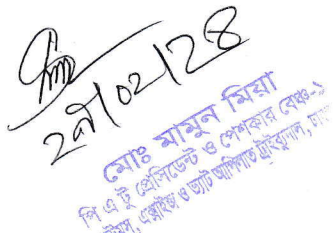 ২৯/০২/২৪
মোঃ মামুন মিয়া
পি এ টু প্রেসিডেন্ট ও পেশকার বেঞ্চ-১
কাস্টমস, এক্সাইজ ও ভ্যাট আপিলাত ট্রাইব্যুনাল,